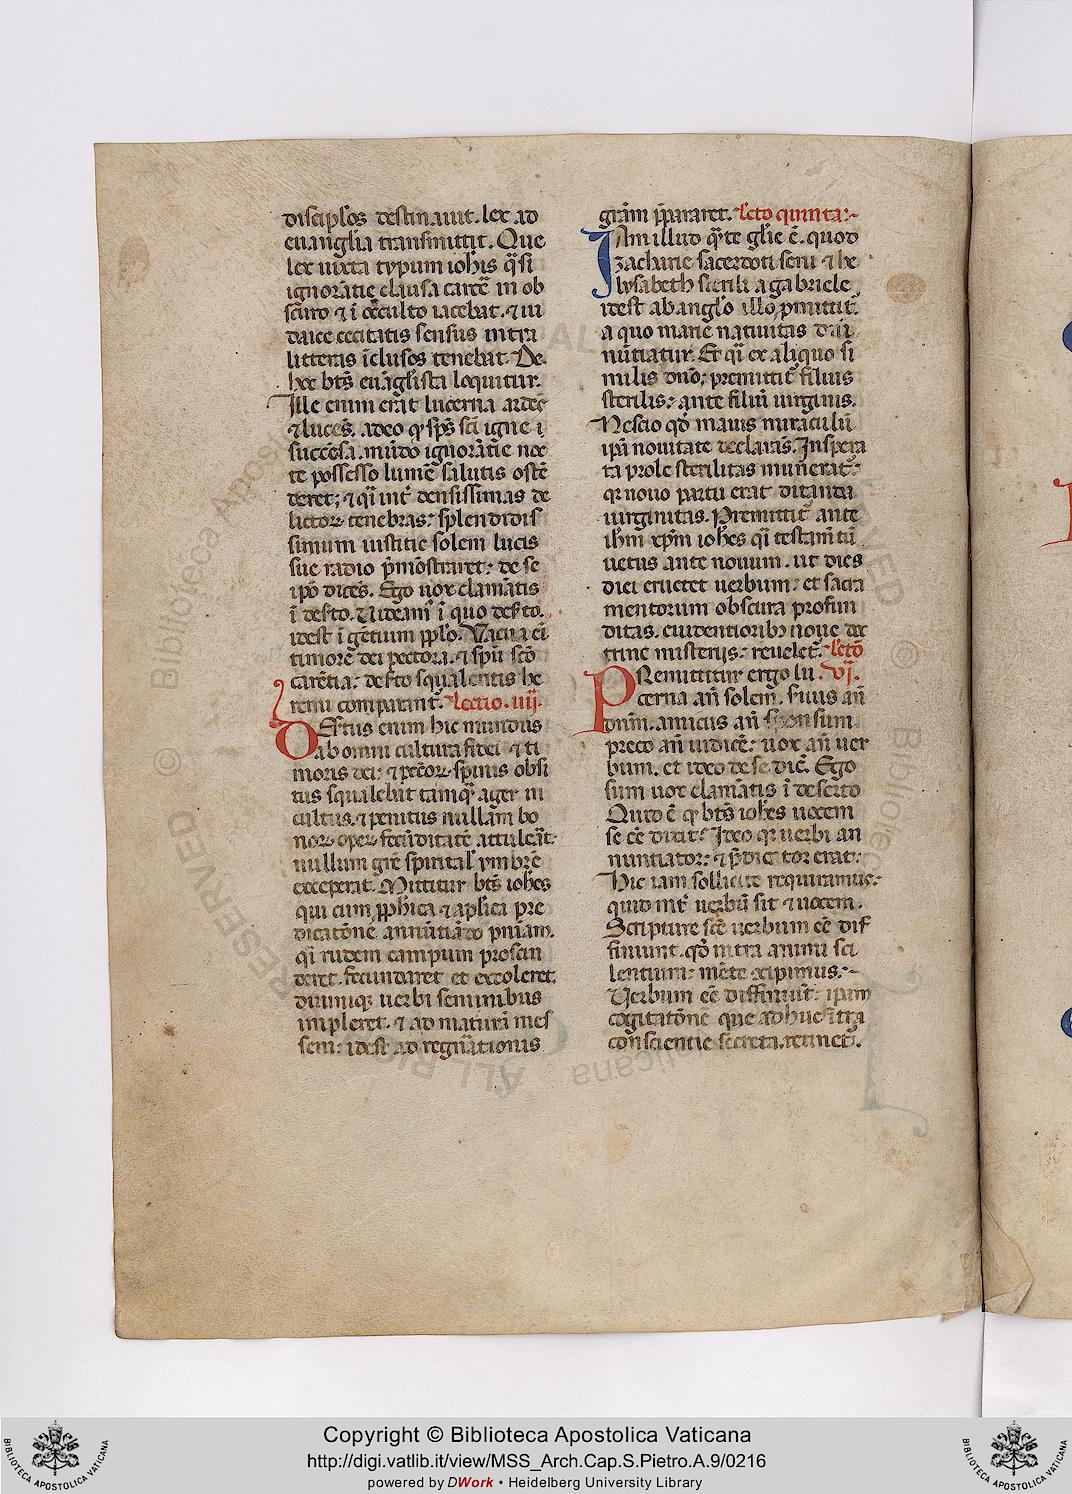 discipłos destinauit. lex ad
euangłia transmittit. Que
lex iuxta typum ioh̄is q̄si
ignorātie clausa carcē in ob
scuro ⁊ ī occulto iacebat. ⁊ iu
daice cecitatis sensus intra
litteras īclusos tenebat. De
hoc bt̄s euāgłista loquitur.
Ille enim erat lucerna ardēs
⁊ lucēs. adeo qͥ sp̄s sc̄i igne ī
succēsa. mūdo ignorātie noc
te possesso lumē salutis ostē
deret; ⁊ q̄i int̄ densissimas de
lictoꝝ tenebras: splendidis
simum iustitie solem lucis
sue radio p̄mostraret: de se
ip̄o dicēs. Ego uox clamātis
ī desꝰto. Uideam̄ ī quo desꝰto.
idest ī gētium pp̄lo. Vacua eī
timore dei pectora. ⁊ sp̄u sc̄o
carētia: desꝰto squalentis he
remi comparant̄. Lectio. iiij.
DEstus enim hic mundus
ab omni cultura fidei ⁊ ti
moris dei: ⁊ pecc̄oꝝ spinis obsi
tus squalebat tamq̄ ager in
cultus. ⁊ penitus nullam bo
noꝝ opeꝝ fecūditatē attuleāt:
nullum grē spiritał ymbrē
exceperat. Mittitur bt̄s ioh̄es
qui cum pp̄hica ⁊ apłica pre
dicatōne annūtiādo pn̄iam.
q̄i rudem campum proscin
deret. fecundaret et excoleret.
diuiniqꝫ uerbi seminibus
impleret. ⁊ ad maturā mes
sem: idest ad regnationis
grām p̄pararet. Lctō quinta:~
IAm illud q̄te głie ē. quod
zacharie sacerdoti seni ⁊ he
lysabeth sterili a gabriele
idest ab angło illo p̄mittit̄.
a quo marie natiuitas dn̄i
nūtiatur. Et q̄i ex aliquo si
milis dn̄o; premittit̄ filius
sterilis: ante filiū uirginis.
Nescio qd̄ mauis miraculū
ip̄a nouitate declarās. Inspera
ta prole sterilitas munerat̄:
qꝛ nouo partu erat ditanda
uirginitas. Premittit̄ ante
ih̄m xp̄m ioh̄es q̄i testam̄tū
uetus ante nouum. ut dies
diei eructet uerbum: et sacra
mentorum obscura profun
ditas. euidentioribꝫ noue doc
trine misteriis: reuelet̄. Lctō
PRemittitur ergo lu .vj.
cerna an̄ solem. siuus an̄
dn̄m. amicus an̄ sponsum
preco an̄ iudicē: uox an̄ uer
bum. et ideo de se dic̄. Ego
sum uox clamātis ī deserto
Quid ē qͥ bt̄s ioh̄es uocem
se eē dixit? Ideo qꝛ uerbi an
nuntiator: ⁊ p̄dicator erat:
Hic iam sollicite requiramus:
quid int̄ uerbū sit ⁊ uocem.
Scripture sc̄e uerbum eē dif
finiunt. qd̄ intra animi si
lentium: mēte xipimus:~
Verbum eē diffiniūt: ipam
cogitatōne que adhuc ītra
conscientie secreta. retinet̄.
Copyright © Biblioteca Apostolica Vaticana
http://digi.vatlib.it/view/MSS_Arch.Cap.S.Pietro.A.9/0216
powered by DWork • Heidelberg University Library
BIBLIOTECA APOSTOLICA VATICANA
BIBLIOTECA APOSTOLICA VATICANA